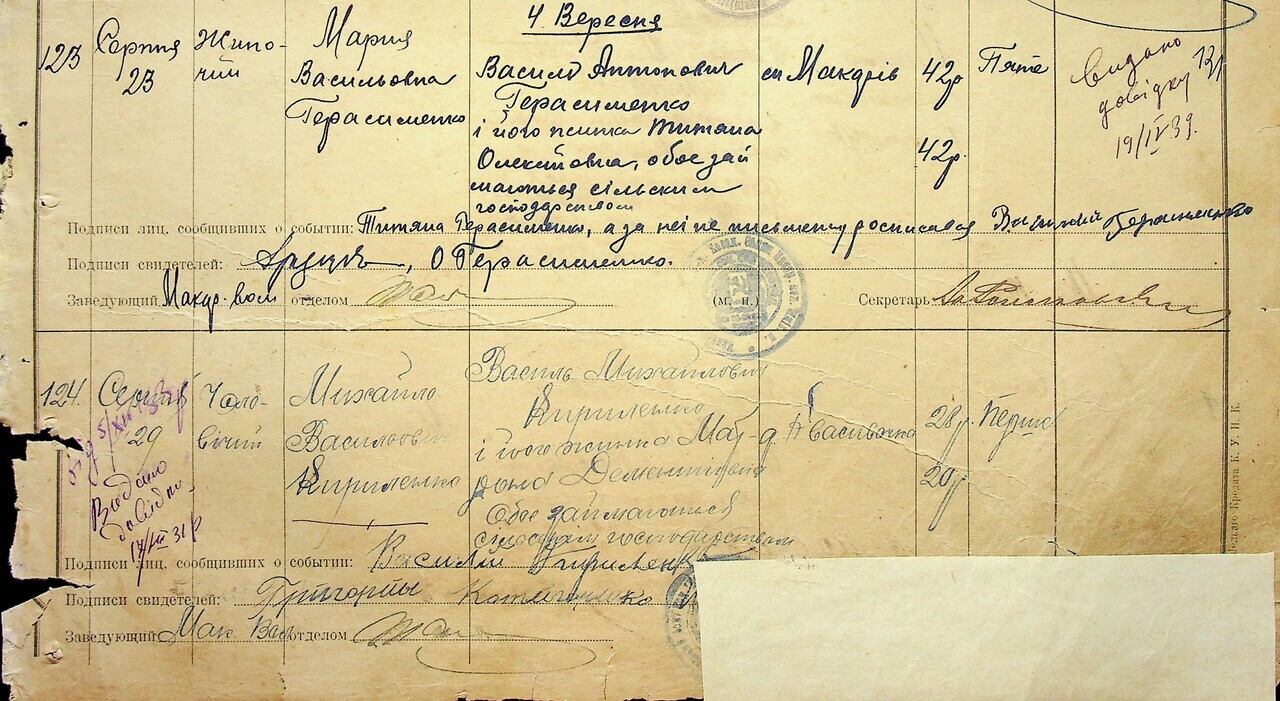 4. Вересня
123 Серпня 23 Жіно-
чий
Мария
Васильовна
Герасименко
Василь Антонович
Герасименко
і його жинка Титяна
Олексіївна, обоє зай
маються сільским
господарством
си Макарів
42р
42р.
Пяте
Видано
довідку
19/IV 39.
Подписи лиц, сообщивших о событии: Титяна Герасименко, а за неї не письменну росписався Василий Герасименко
Подписи свидетелей: О Герасименко.
Заведующий Макар. вол отделом (м. п.) Секретарь
124. Серпня 29 Чоло-
вічий
Михайло
Васильович
Кириленко
Василь Михайлович
Кириленко
і його жинка Мот-
рона Дементіївна
Обоє займаються
сільским господарством
28р
20р
Перше
Видано
довідку
17/III 31р
Подписи лиц, сообщивших о событии: Василий Кириленко
Подписи свидетелей: Григорій
Заведующий Мак. Вол отделом